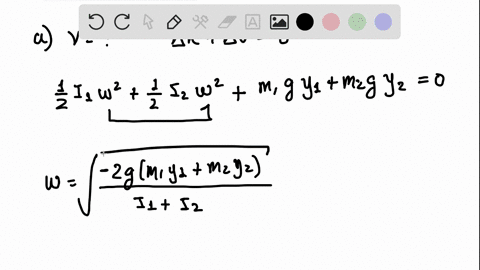 a) v = ? ΔK + ΔU = 0
½ I₁ w² + ½ I₂ w² + m₁ g y₁ + m₂ g y₂ = 0
w = √(-2g(m₁y₁ + m₂y₂) / I₁ + I₂)